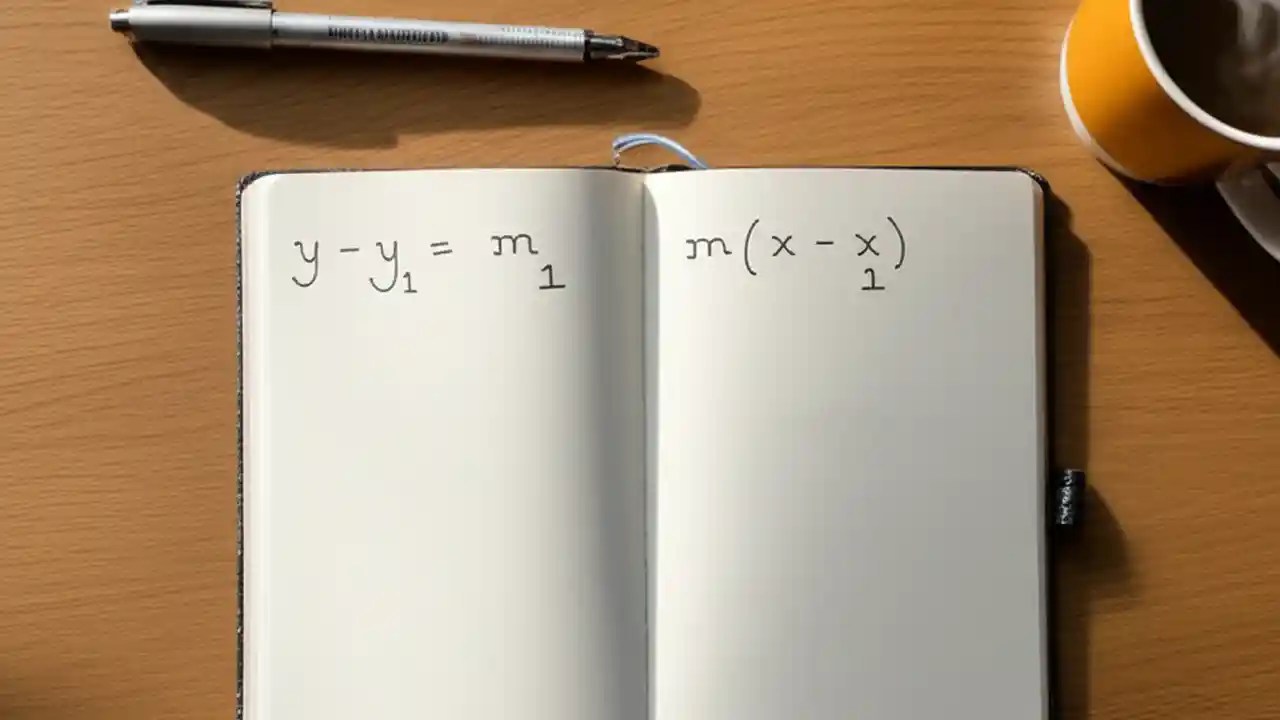 y - y₁ = m ₁
m(x - x₁)